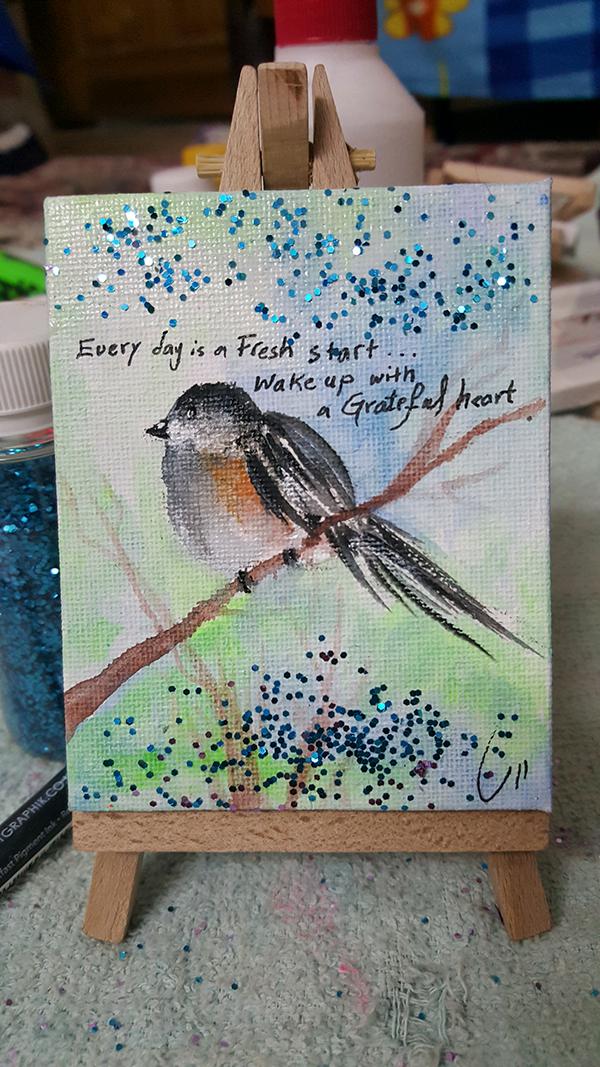 Every day is a Fresh start...
Wake up with
a Grateful heart
GRAPHIK